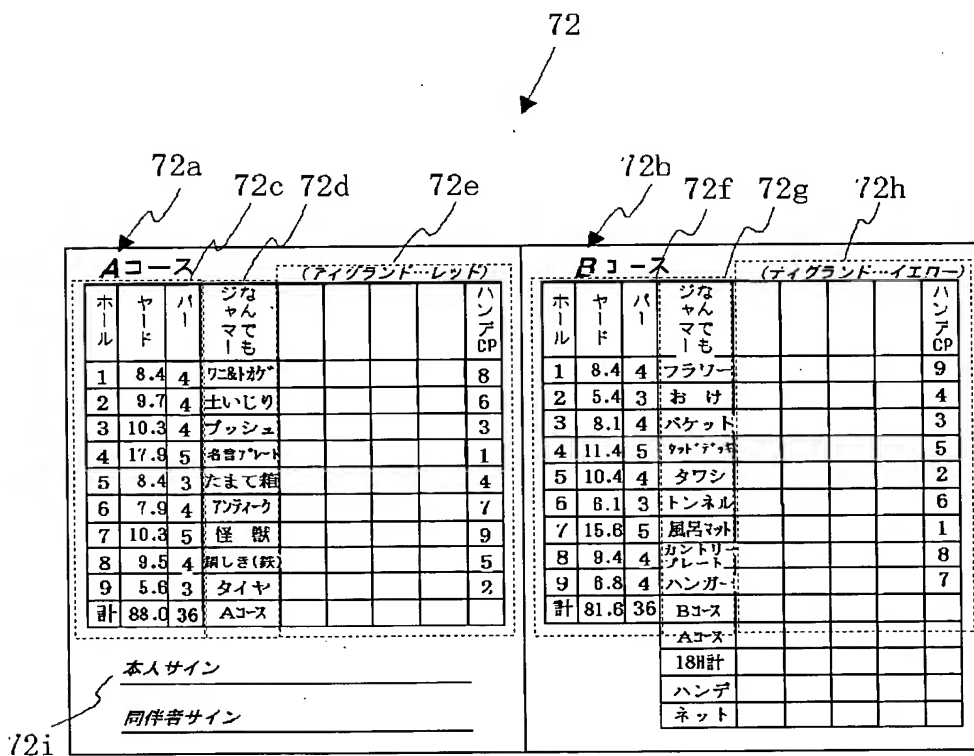 72
72a
72c
72d
72e
72b
72f
72g
72h
Aコース (ティグランド…レッド)
ホール ヤード パー なんでもジャマー ハンデCP
1 8.4 4 ワニ&トカゲ 8
2 9.7 4 土いじり 6
3 10.3 4 プッシュ 3
4 17.9 5 名言プレート 1
5 8.4 3 たまて箱 4
6 7.9 4 アンティーク 7
7 10.3 5 怪獣 9
8 9.5 4 鍋しき(鉄) 5
9 5.6 3 タイヤ 2
計 88.0 36 Aコース
本人サイン
同伴者サイン
72i
Bコース (ティグランド…イエロー)
ホール ヤード パー なんでもジャマー ハンデCP
1 8.4 4 フラワー 9
2 5.4 3 おけ 4
3 8.1 4 バケット 3
4 11.4 5 ウッドデッキ 5
5 10.4 4 タワシ 2
6 6.1 3 トンネル 6
7 15.6 5 風呂マット 1
8 9.4 4 カントリープレート 8
9 6.8 4 ハンガー 7
計 81.6 36 Bコース
Aコース
18H計
ハンデ
ネット